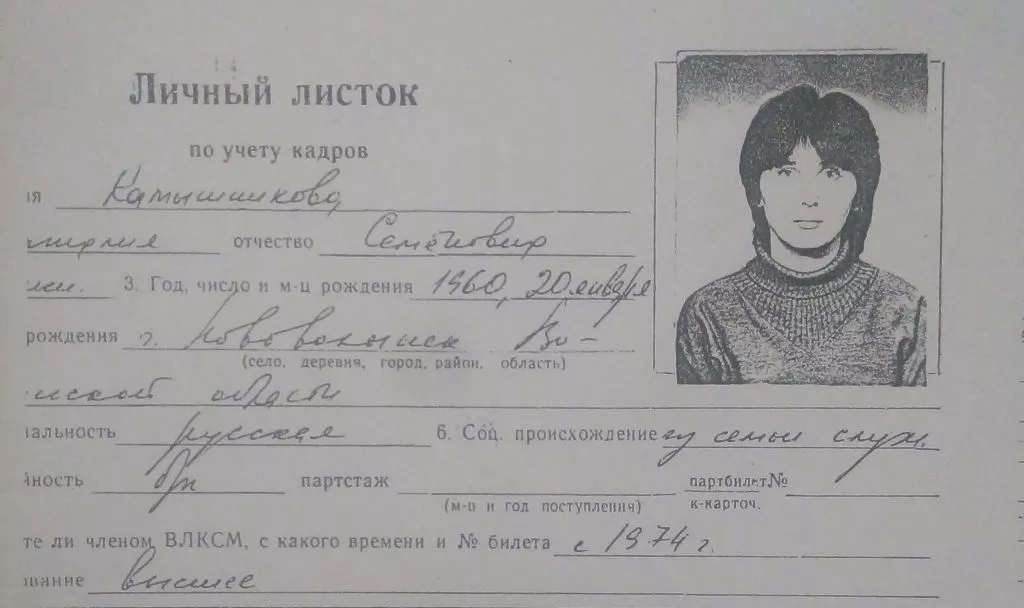 Личный листок
по учету кадров
ия Камышникова
отчество Семёновна
жен. 3. Год, число и м-ц рождения 1960, 20 января
рождения г.
(село, деревня, город, район, область)
области
альность русская 6. Соц. происхождение из семьи служ.
йность б/п партстаж партбилет№
(м-ц и год поступления) к-карточ.
те ли членом ВЛКСМ, с какого времени и № билета с 1974 г.
ование высшее